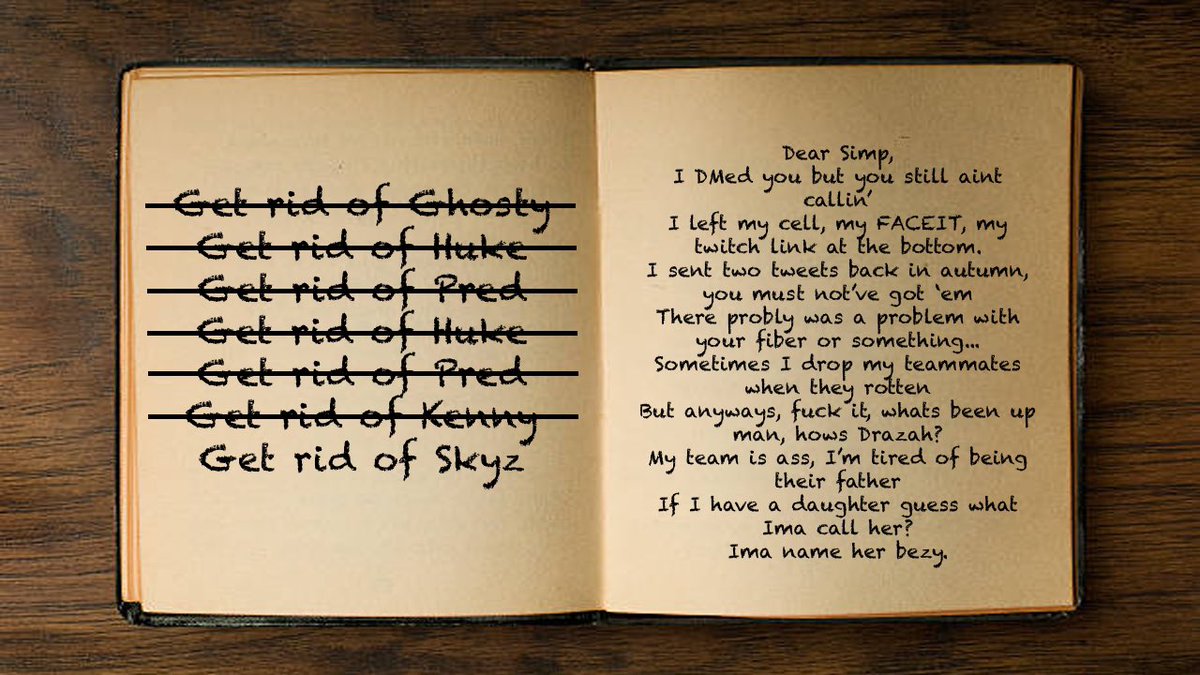 Get rid of Ghosty
Get rid of Huke
Get rid of Pred
Get rid of Huke
Get rid of Pred
Get rid of Kenny
Get rid of Skyz
Dear Simp,
I DMed you but you still aint
callin’
I left my cell, my FACEIT, my
twitch link at the bottom.
I sent two tweets back in autumn,
you must not’ve got ‘em
There probly was a problem with
your fiber or something...
Sometimes I drop my teammates
when they rotten
But anyways, fuck it, whats been up
man, hows Drazah?
My team is ass, I’m tired of being
their father
If I have a daughter guess what
Ima call her?
Ima name her bezy.